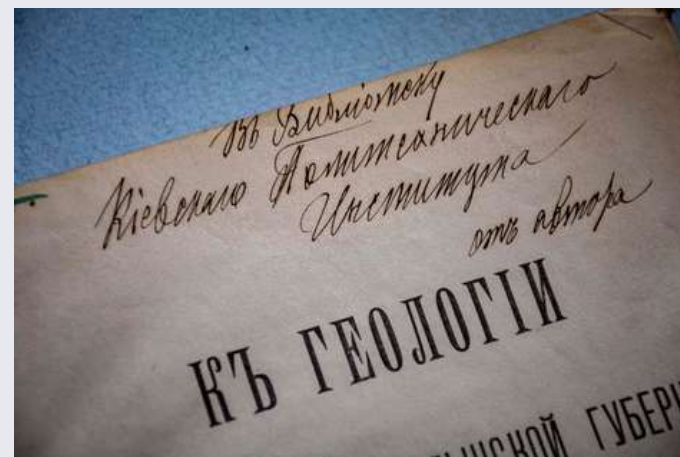 Въ Библіотеку
Кіевскаго Политехническаго
Института
отъ автора
КЪ ГЕОЛОГІИ